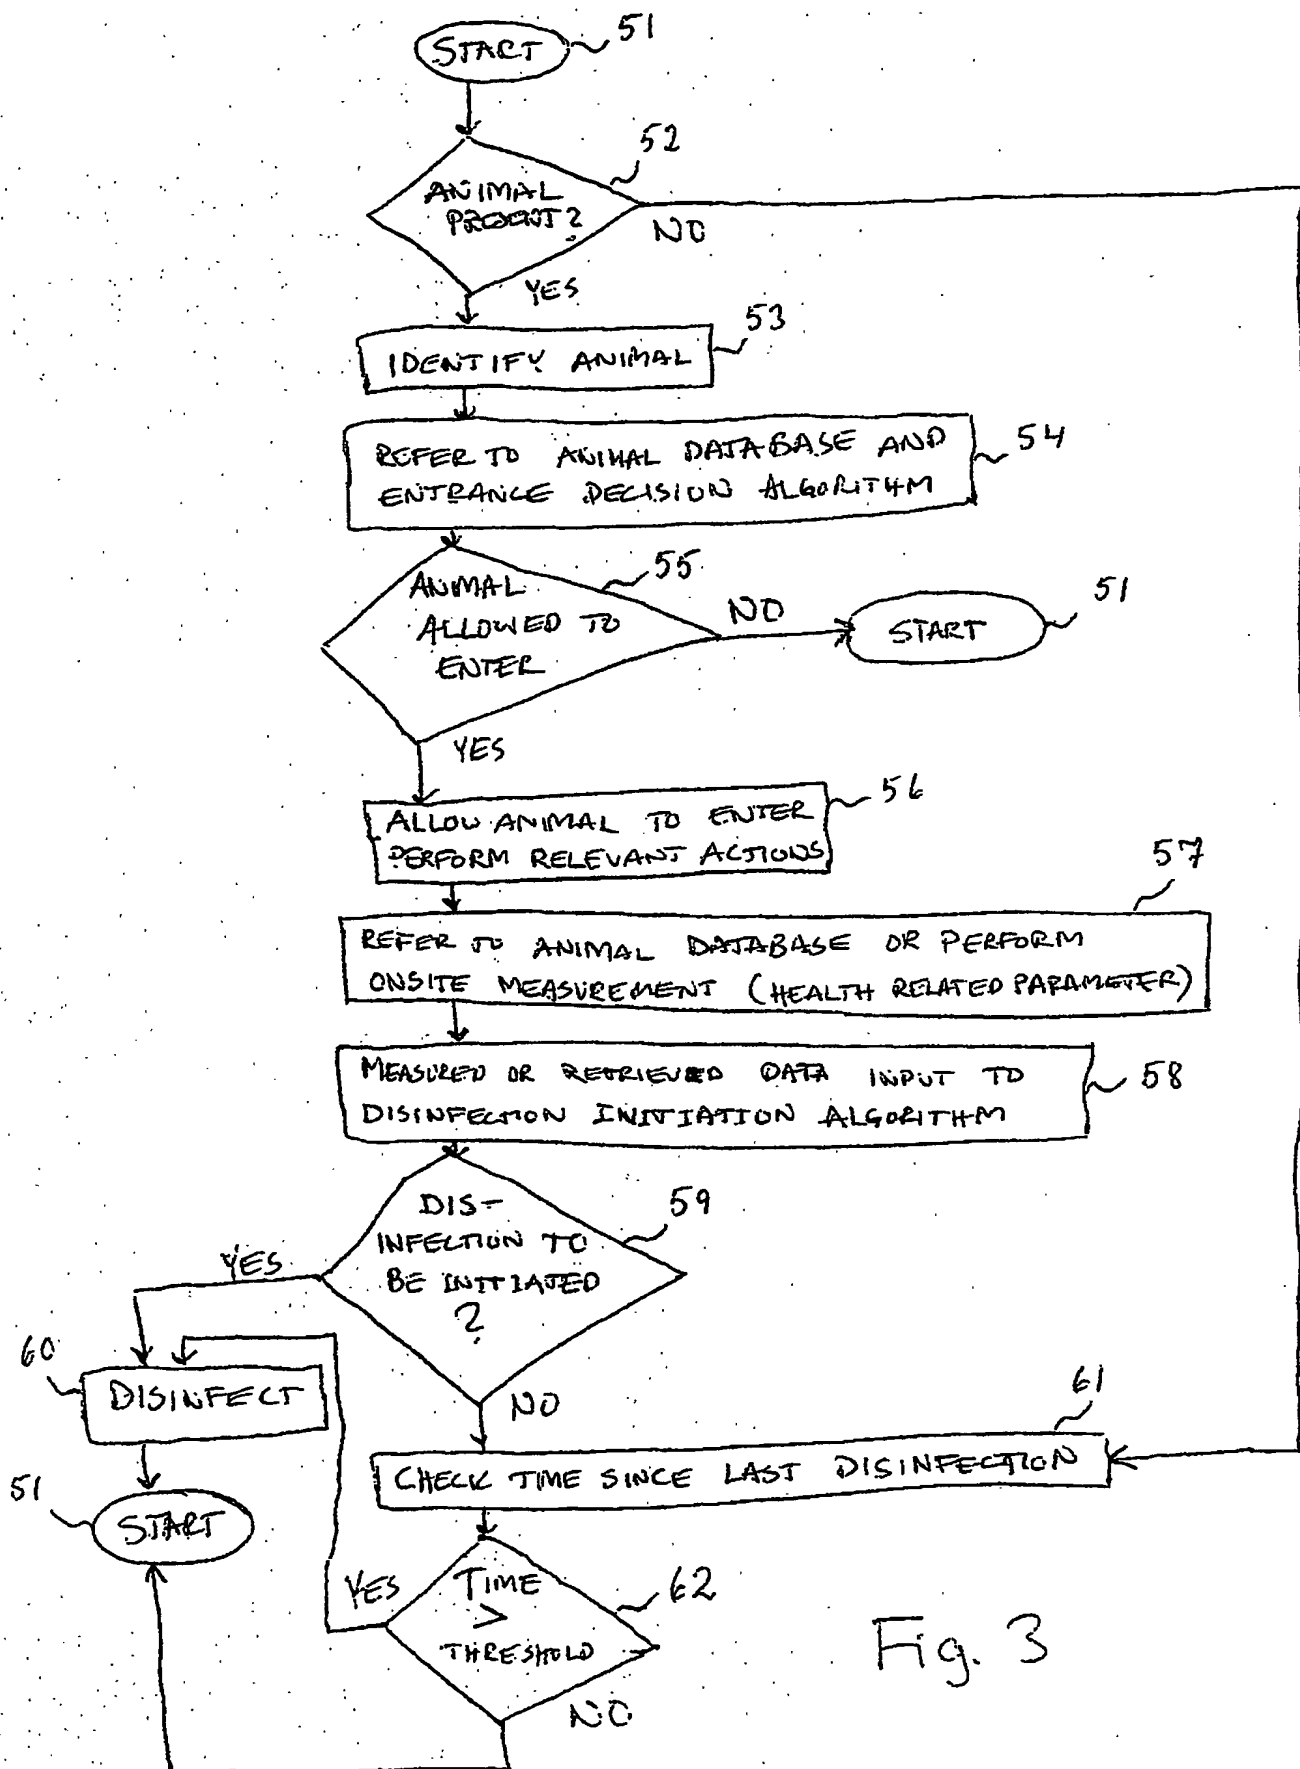 START
51
52
ANIMAL
PRESENT?
NO
YES
53
IDENTIFY ANIMAL
54
REFER TO ANIMAL DATABASE AND
ENTRANCE DECISION ALGORITHM
55
ANIMAL
ALLOWED TO
ENTER
NO
START
51
YES
56
ALLOW ANIMAL TO ENTER
PERFORM RELEVANT ACTIONS
57
REFER TO ANIMAL DATABASE OR PERFORM
ONSITE MEASUREMENT (HEALTH RELATED PARAMETER)
MEASURED OR RETRIEVED DATA INPUT TO
DISINFECTION INITIATION ALGORITHM
58
DIS-
INFECTION TO
BE INITIATED
?
59
YES
60
DISINFECT
NO
61
CHECK TIME SINCE LAST DISINFECTION
51
START
YES
TIME
>
THRESHOLD
62
NO
Fig. 3